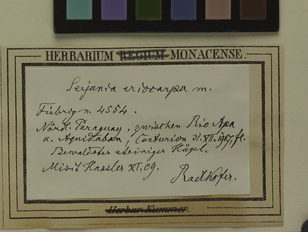 HERBARIUM REGIUM MONACENSE.
Serjania eriocarpa m.
Fiebrig n. 4554.
Nörd. Paraguay, zwischen Rio Apa
u. Aquidaban, Centurion 21. XII.
Bewaldeter steiniger Hügel.
Misit Hassler XI.09.
Radlkofer.
Herbar Kummer.